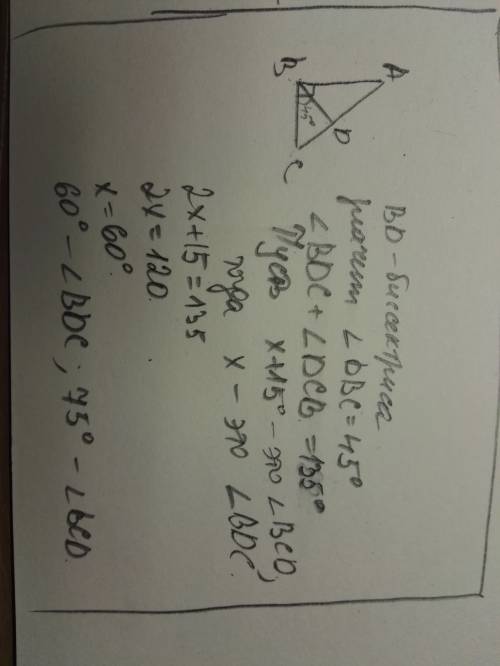 A
B
45°
D
C
BD - биссектриса
значит ∠DBC = 45°
∠BDC + ∠DCB = 135°
Пусть x+15° - это ∠BCD,
тогда x - это ∠BDC.
2x+15=135
2x=120
x=60°.
60° - ∠BDC; 75° - ∠BCD.